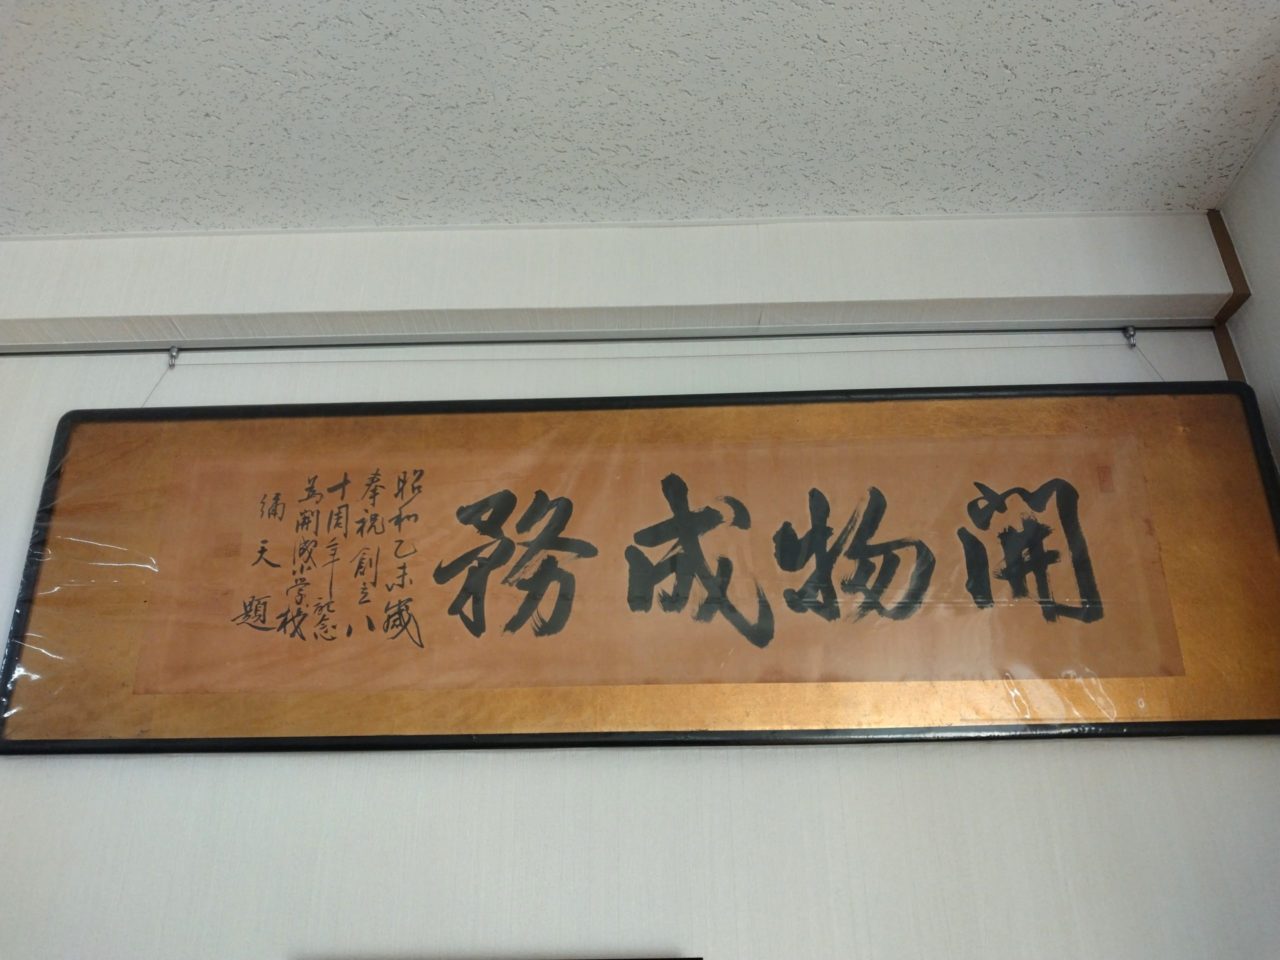 開物成務
昭和乙未歳
奉祝創立八
十周年記念
為開成小学校
彌天
題